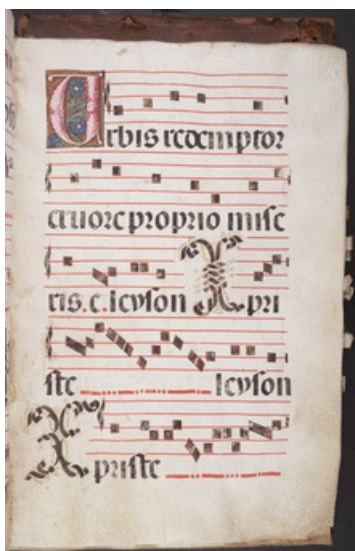 Urbis redemptor
cruore proprio mise
ris. e. leyson Xpri
ste leyson
Xpriste